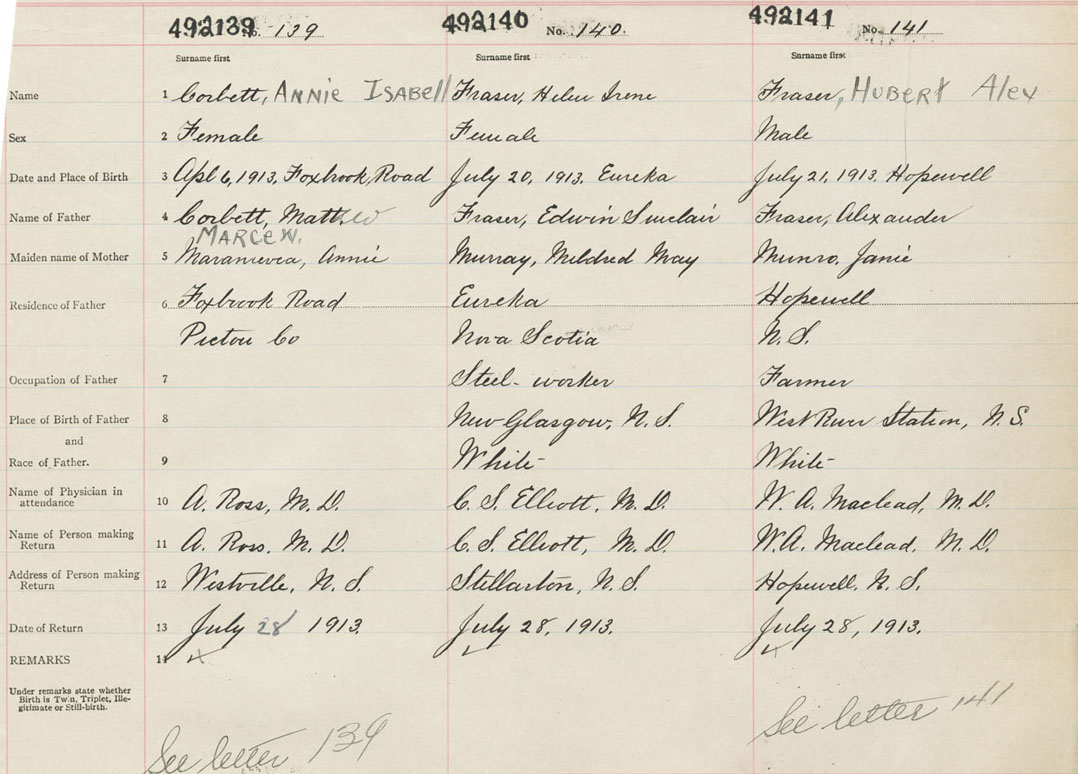 492139 No. 139 492140 No. 140. 492141 No. 141
Surname first Surname first Surname first
Name 1 Corbett, Annie Isabell Fraser, Helen Irene Fraser, Hubert Alex
Sex 2 Female Female Male
Date and Place of Birth 3 Apl 6, 1913, Foxbrook Road July 20, 1913, Eureka July 21, 1913. Hopewell
Name of Father 4 Corbett, Matthew Fraser, Edwin Sinclair Fraser, Alexander
Maiden name of Mother 5 Annie Murray, Mildred May Munro, Janie
Residence of Father 6 Foxbrook Road Eureka Hopewell
Pictou Co Nova Scotia N. S.
Occupation of Father 7 Steel-worker Farmer
Place of Birth of Father 8 New Glasgow, N. S. West River Station, N. S.
and
Race of Father. 9 White White
Name of Physician in
attendance 10 A. Ross, M. D. C. S. Elliott, M. D. W. A. Maclead, M. D.
Name of Person making
Return 11 A. Ross. M. D. C. S. Elliott, M. D. W. A. Maclead. M. D.
Address of Person making
Return 12 Westville, N. S. Stellarton, N. S. Hopewell. N. S.
Date of Return 13 July 28 1913. July 28, 1913. July 28, 1913.
REMARKS 14
Under remarks state whether
Birth is Twin, Triplet, Ille-
gitimate or Still-birth.
See letter 139 See letter 141